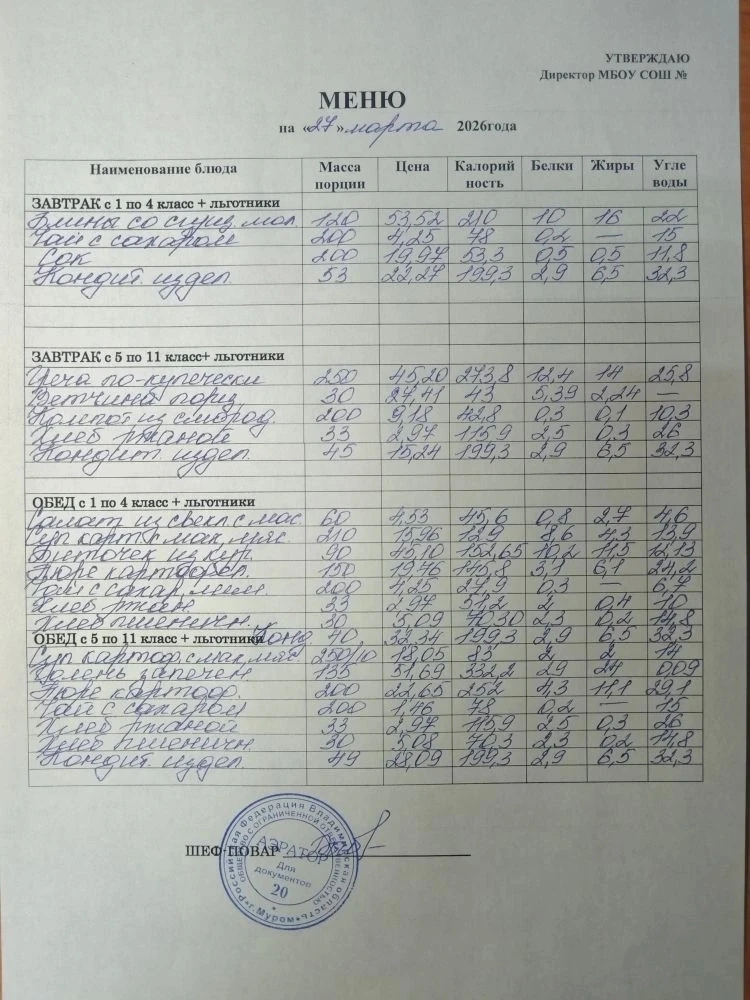 УТВЕРЖДАЮ
Директор МБОУ СОШ №
МЕНЮ
на «27» марта 2026года
Наименование блюда Масса порции Цена Калорий ность Белки Жиры Угле воды
ЗАВТРАК с 1 по 4 класс + льготники
Блины со сгущ. мол. 120 53,52 210 10 16 22
Чай с сахаром 200 4,25 78 0,2 — 15
Сок 200 19,97 53,3 0,5 0,5 11,8
Кондит. издел. 53 22,27 199,3 2,9 6,5 32,3
ЗАВТРАК с 5 по 11 класс+ льготники
Греча по-купечески 250 45,20 273,8 12,4 14 25,8
Ветчина порц. 30 27,41 43 5,39 2,24 —
Компот из смород. 200 9,18 42,8 0,3 0,1 10,3
Хлеб ржаной 33 2,97 115,9 2,5 0,3 26
Кондит. издел. 45 15,24 199,3 2,9 6,5 32,3
ОБЕД с 1 по 4 класс + льготники
Салат из свекл с мас. 60 4,53 45,6 0,8 2,7 4,6
Суп карт с мак, мяс. 210 15,96 129 8,6 4,3 13,9
Биточек из кур. 90 45,10 152,65 10,2 11,5 12,13
Пюре картофел. 150 19,46 145,8 3,1 6,1 24,2
Чай с сахар, лим. 200 4,25 27,9 0,3 — 6,7
Хлеб ржан 33 2,97 51,2 2 0,4 10
Хлеб пшеничн. 30 5,09 70,30 2,3 0,2 14,8
ОБЕД с 5 по 11 класс + льготники Конд. 40 32,34 199,3 2,9 6,5 32,3
Суп картоф. с мак, мяс 250/10 18,05 83 2 2 14
Голень запечен 135 51,69 332,2 29 24 0,09
Пюре картоф. 200 22,65 252 4,3 11,1 29,1
Чай с сахаром 200 1,46 78 0,2 — 15
Хлеб ржаной 33 2,97 115,9 2,5 0,3 26
Хлеб пшеничн. 30 5,08 70,3 2,3 0,2 14,8
Кондит. издел. 49 28,09 199,3 2,9 6,5 32,3
ШЕФ-ПОВАР
Российская Федерация Владимирская область г.Муром
ОБЩЕСТВО С ОГРАНИЧЕННОЙ ОТВЕТСТВЕННОСТЬЮ
АЭРАТОР
Для
документов
20